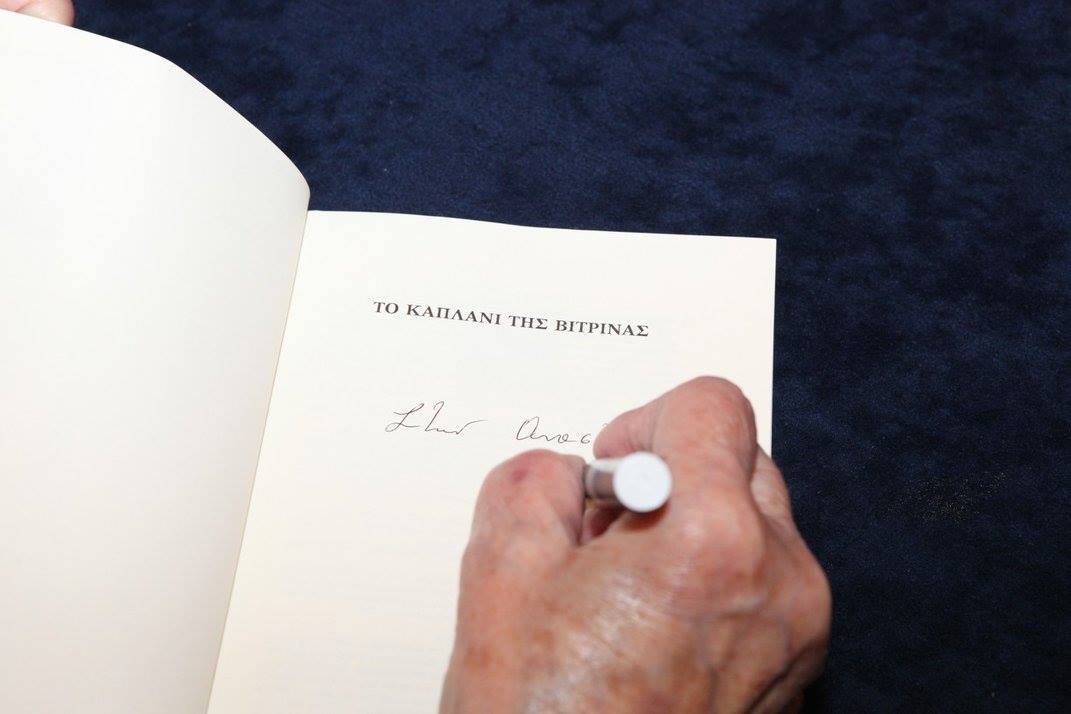 ΤΟ ΚΑΠΛΑΝΙ ΤΗΣ ΒΙΤΡΙΝΑΣ
Στην